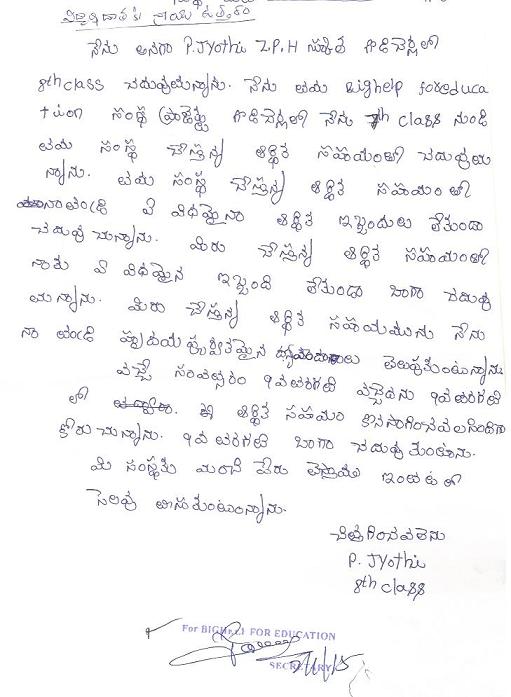 విద్యార్థి దాతకు వ్రాయు ఉత్తరం
నేను అనగా P. Jyothi Z.P.H స్కూల్ గుడిచెర్లలో
8th class చదువుతున్నాను. నేను తమ Bighelp for educa
tion సంస్థ ప్రాజెక్టు గుడిచెర్లలో నేను 7th class నుండి
తమ సంస్థ చేస్తున్న ఆర్థిక సహాయంతో చదువుతు
న్నాను. తమ సంస్థ చేస్తున్న ఆర్థిక సహాయంతో
నా తండ్రి ఏ విధమైన ఆర్థిక ఇబ్బందులు లేకుండా
చదువుచున్నాను. మీరు చేస్తున్న ఆర్థిక సహాయంతో
నాకు ఏ విధమైన ఇబ్బంది లేకుండా బాగా చదువు
తున్నాను. మీరు చేస్తున్న ఆర్థిక సహాయమునకు నేను
నా తండ్రి హృదయపూర్వకమైన ధన్యవాదాలు తెలుపుకుంటున్నాను
వచ్చే సంవత్సరం 9వ తరగతి వచ్చెదను 9వ తరగతి
లో ఈ ఆర్థిక సహాయం కొనసాగించవలసిందిగా
కోరుచున్నాను. 9వ తరగతి బాగా చదువుకుంటాను.
మీ సంస్థకు మంచి పేరు తెస్తాము ఇంతటితో
సెలవు తీసుకుంటున్నాను.
చిత్తగించవలెను
P. Jyothi
8th class
For BIGHELP FOR EDUCATION
SECRETARY